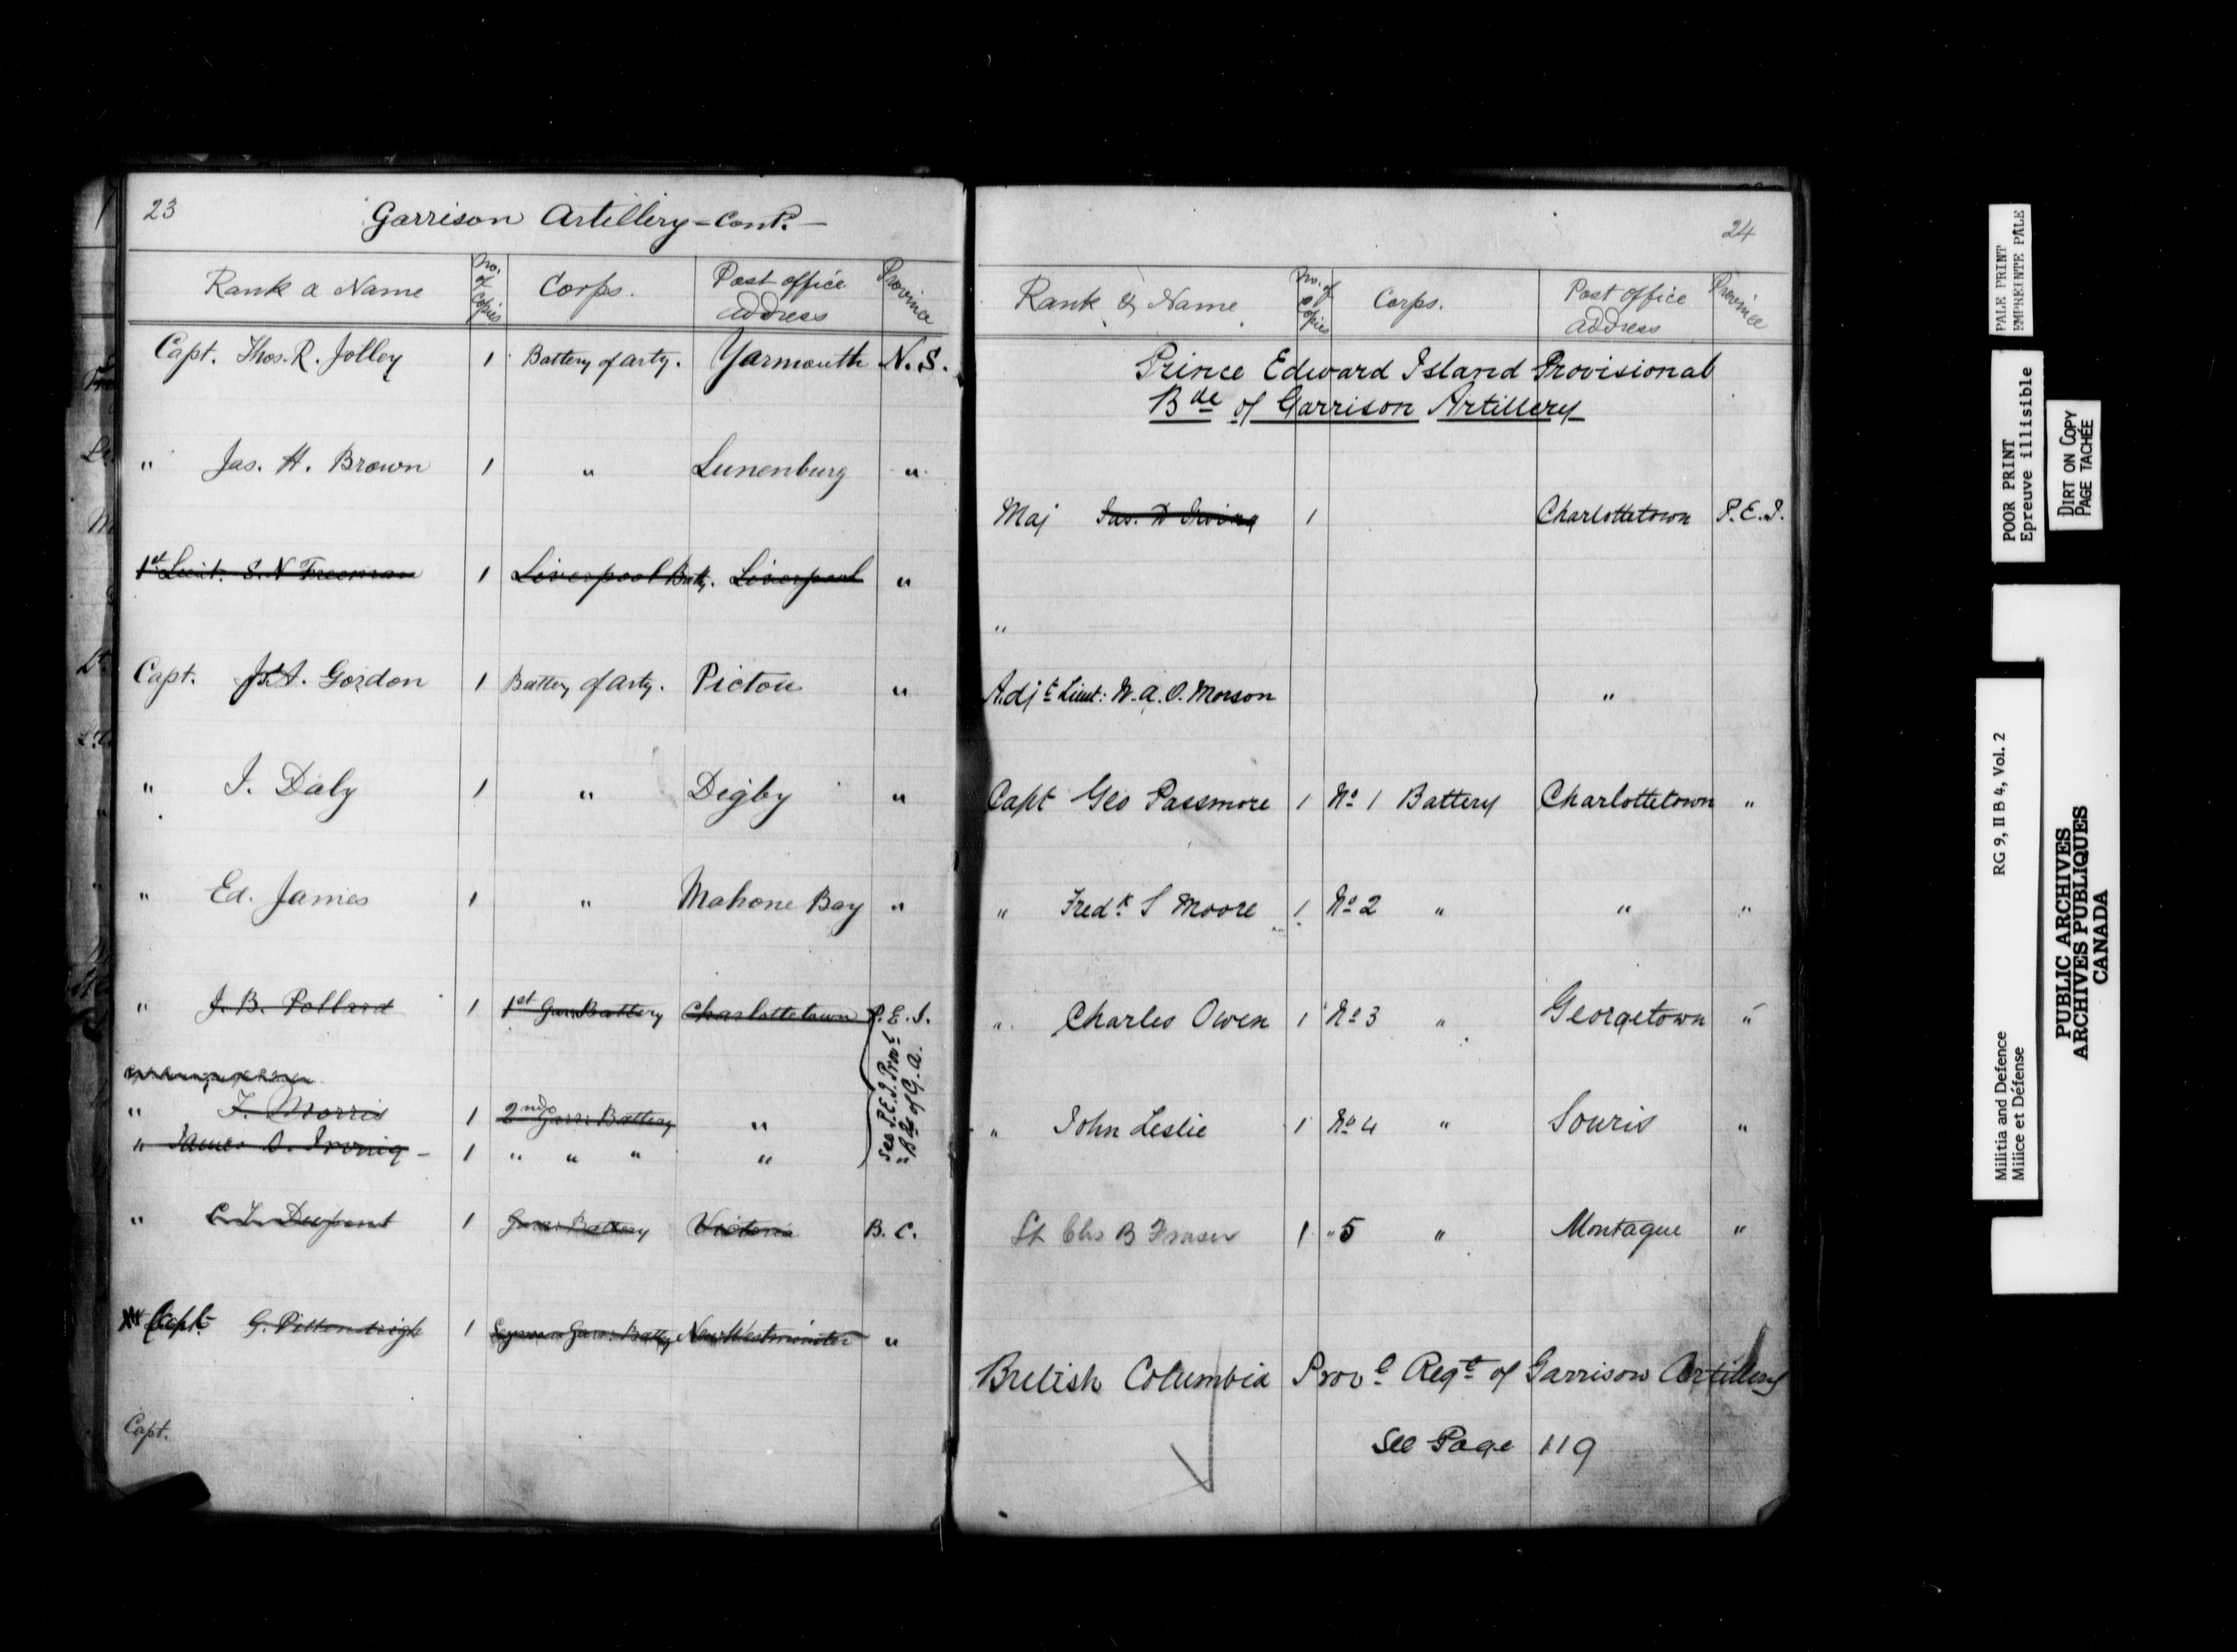 23
Garrison Artillery - Cont.d -
Rank & Name No. of Copies Corps. Post office address Province
Capt. Thos. R. Jolley 1 Battery of arty. Yarmouth N.S.
" Jas. H. Brown 1 " Lunenburg "
1st Lieut. S. N Freeman 1 Liverpool Batty. Liverpool "
Capt. Gordon 1 Battery of arty. Pictou "
" J. Daly 1 " Digby "
" Ed. James 1 " Mahone Bay "
" J. B. Pollard 1 1st Garr. Battery Charlottetown P.E.I.
" F. Morris 1 2nd Garr. Battery "
" James D. Irving - 1 " " " "
See P.E.I. Provl
" Bde of G.A.
" C. T. Dupont 1 Garr. Battery Victoria B.C.
Capt. G. Pittendrigh 1 Seymour Garr. Batty New Westminster "
Capt.
24
Rank & Name No. of Copies Corps. Post office address Province
Prince Edward Island Provisional
Bde of Garrison Artillery
Maj Jas. D Irving 1 Charlottetown P.E.I.
"
Adjt Lieut: W. A. O. Morson "
Capt Geo Passmore 1 No 1 Battery Charlottetown "
" Fredk S Moore 1 No 2 " " "
" Charles Owen 1 No 3 " Georgetown "
" John Leslie 1 No 4 " Souris "
Lt Chs B Fraser 1 " 5 " Montague "
British Columbia Provl Regt of Garrison Artillery
See Page 119
PALE PRINT
EMPREINTE PÂLE
POOR PRINT
Epreuve illisible
DIRT ON COPY
PAGE TACHÉE
RG 9, II B 4, Vol. 2
Militia and Defence
Milice et Défense
PUBLIC ARCHIVES
ARCHIVES PUBLIQUES
CANADA